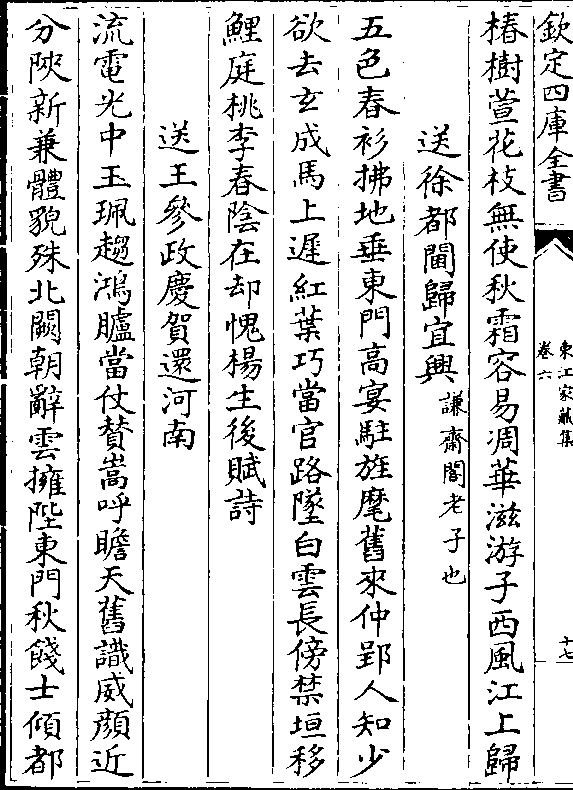 欽定四庫全書
東江家藏集
卷六
十七
椿樹萱花枝無使秋霜容易凋華滋游子西風江上歸
送徐都閫歸宜興謙齋閣老子也
五色春衫拂地垂東門高宴駐旌麾舊來仲郢人知少
欲去玄成馬上遲紅葉巧當官路墜白雲長傍禁垣移
鯉庭桃李春陰在却愧楊生後賦詩
送王參政慶賀還河南
流電光中玉珮趨鴻臚當仗贊嵩呼瞻天舊識威顔近
分陜新兼體貌殊北闕朝辭雲擁陛東門秋餞士傾都